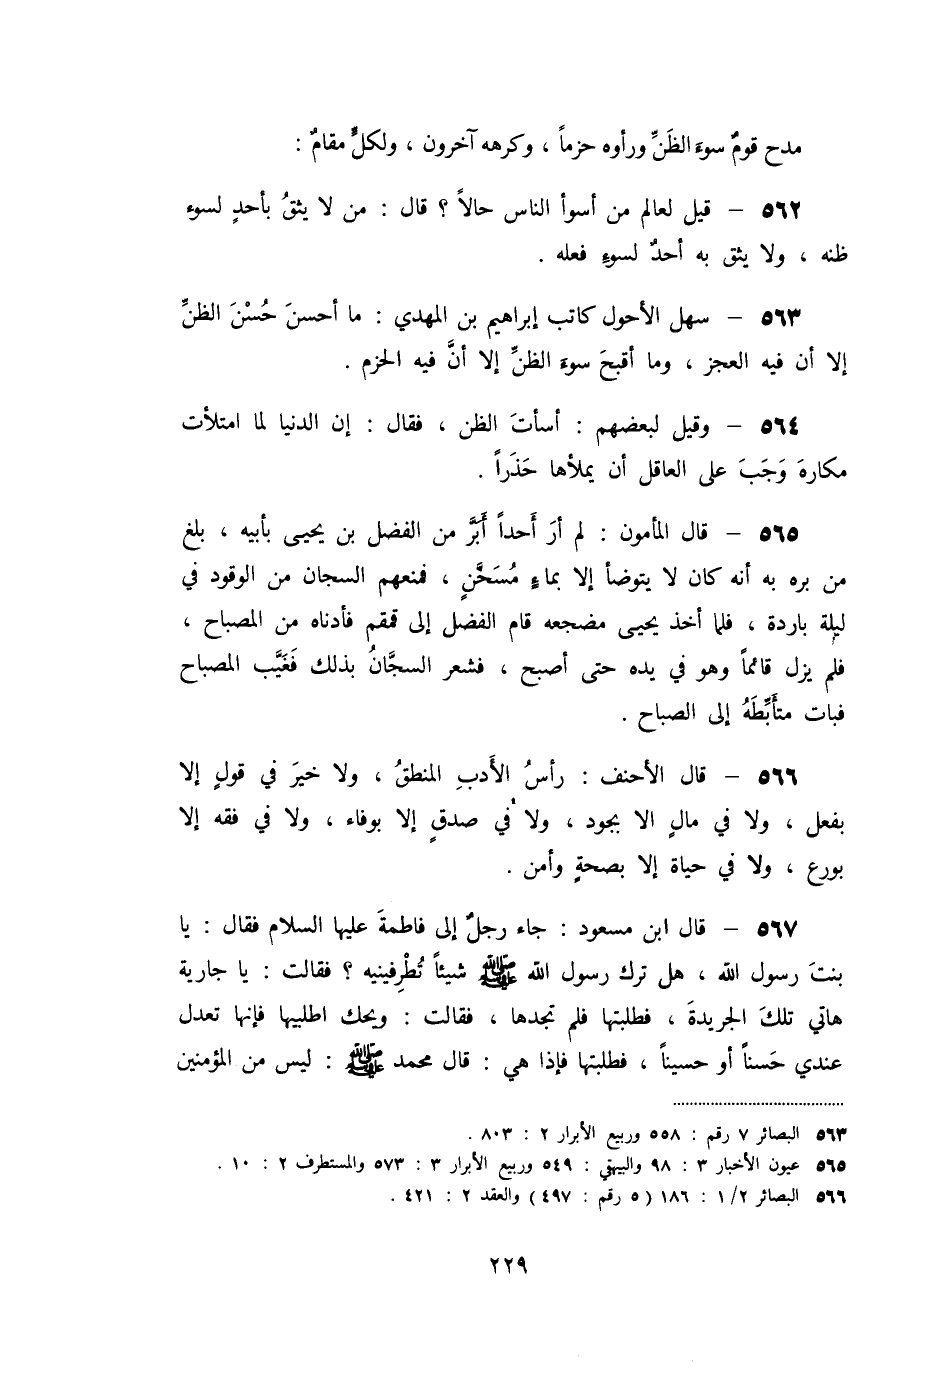 مدح قومٌ سوءَ الظَنِّ ورأوه حزماً ، وكرهه آخرون ، ولكلٍّ مقامٌ :
٥٦٢ – قيل لعالم من أسوأ الناس حالاً ؟ قال : من لا يثقُ بأحدٍ لسوء
ظنه ، ولا يثق به أحدٌ لسوءِ فعله .
٥٦٣ – سهل الأحول كاتب إبراهيم بن المهدي : ما أحسنَ حُسْنَ الظنِّ
إلا أن فيه العجز ، وما أقبحَ سوءَ الظنِّ إلا أنَّ فيه الحزم .
٥٦٤ – وقيل لبعضهم : أسأتَ الظن ، فقال : إن الدنيا لما امتلأت
مكارهَ وَجَبَ على العاقل أن يملأها حَذَراً .
٥٦٥ – قال المأمون : لم أرَ أَحداً أَبَرَّ من الفضل بن يحيى بأبيه ، بلغ
من بره به أنه كان لا يتوضأ إلا بماءٍ مُسَخَّنٍ ، فمنعهم السجان من الوقود في
ليلة باردة ، فلما أخذ يحيى مضجعه قام الفضل إلى قمقم فأدناه من المصباح ،
فلم يزل قائماً وهو في يده حتى أصبح ، فشعر السجَّانُ بذلك فَغَيَّب المصباح
فبات متأَبِّطَهُ إلى الصباح .
٥٦٦ – قال الأحنف : رأسُ الأَدبِ المنطقُ ، ولا خيرَ في قولٍ إلا
بفعل ، ولا في مالٍ الا بجود ، ولا في صدقٍ إلا بوفاء ، ولا في فقه إلا
بورع ، ولا في حياة إلا بصحةٍ وأمن .
٥٦٧ – قال ابن مسعود : جاء رجلٌ إلى فاطمةَ عليها السلام فقال : يا
بنتَ رسول الله ، هل ترك رسول الله ﷺ شيئاً تُطْرِفينيه ؟ فقالت : يا جارية
هاتي تلكَ الجريدةَ ، فطلبتها فلم تجدها ، فقالت : ويحك اطلبيها فإنها تعدل
عندي حَسناً أو حسيناً ، فطلبتها فإذا هي : قال محمد ﷺ : ليس من المؤمنين
٥٦٣ البصائر ٧ رقم : ٥٥٨ وربيع الأبرار ٢ : ٨٠٣ .
٥٦٥ عيون الأخبار ٣ : ٩٨ والبيهقي : ٥٤٩ وربيع الأبرار ٣ : ٥٧٣ والمستطرف ٢ : ١٠ .
٥٦٦ البصائر ١/٢ : ١٨٦ ( ٥ رقم : ٤٩٧ ) والعقد ٢ : ٤٢١ .
٢٢٩